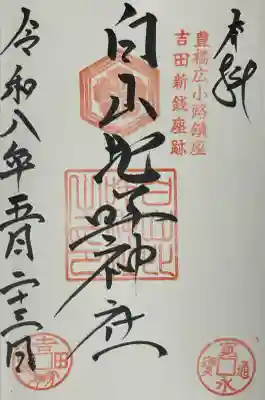 奉拝
豊橋広小路鎮座
吉田新銭座跡
白山比咩神社
令和八年五月二十三日
寛永通寳
吉田